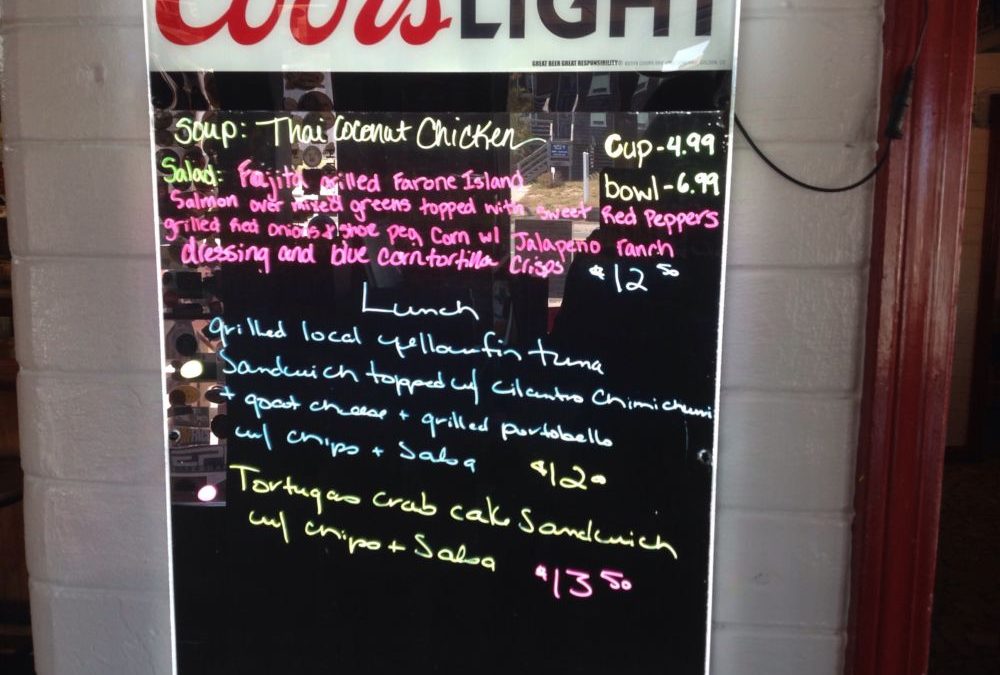 Coors LIGHT
GREAT BEER GREAT RESPONSIBILITY®
Soup: Thai Coconut Chicken
Cup - 4.99
bowl - 6.99
Salad: Fajita grilled Farone Island
Salmon over mixed greens topped with sweet Red Peppers
grilled Red Onions & shoe peg Corn w/ Jalapeño ranch
dressing and blue corn tortilla crisps $12 50
Lunch
grilled local yellowfin tuna
Sandwich topped w/ Cilantro Chimichurri
+ goat cheese + grilled portobello
w/ chips + Salsa $12
Tortugas crab cake Sandwich
w/ chips + Salsa $13 50